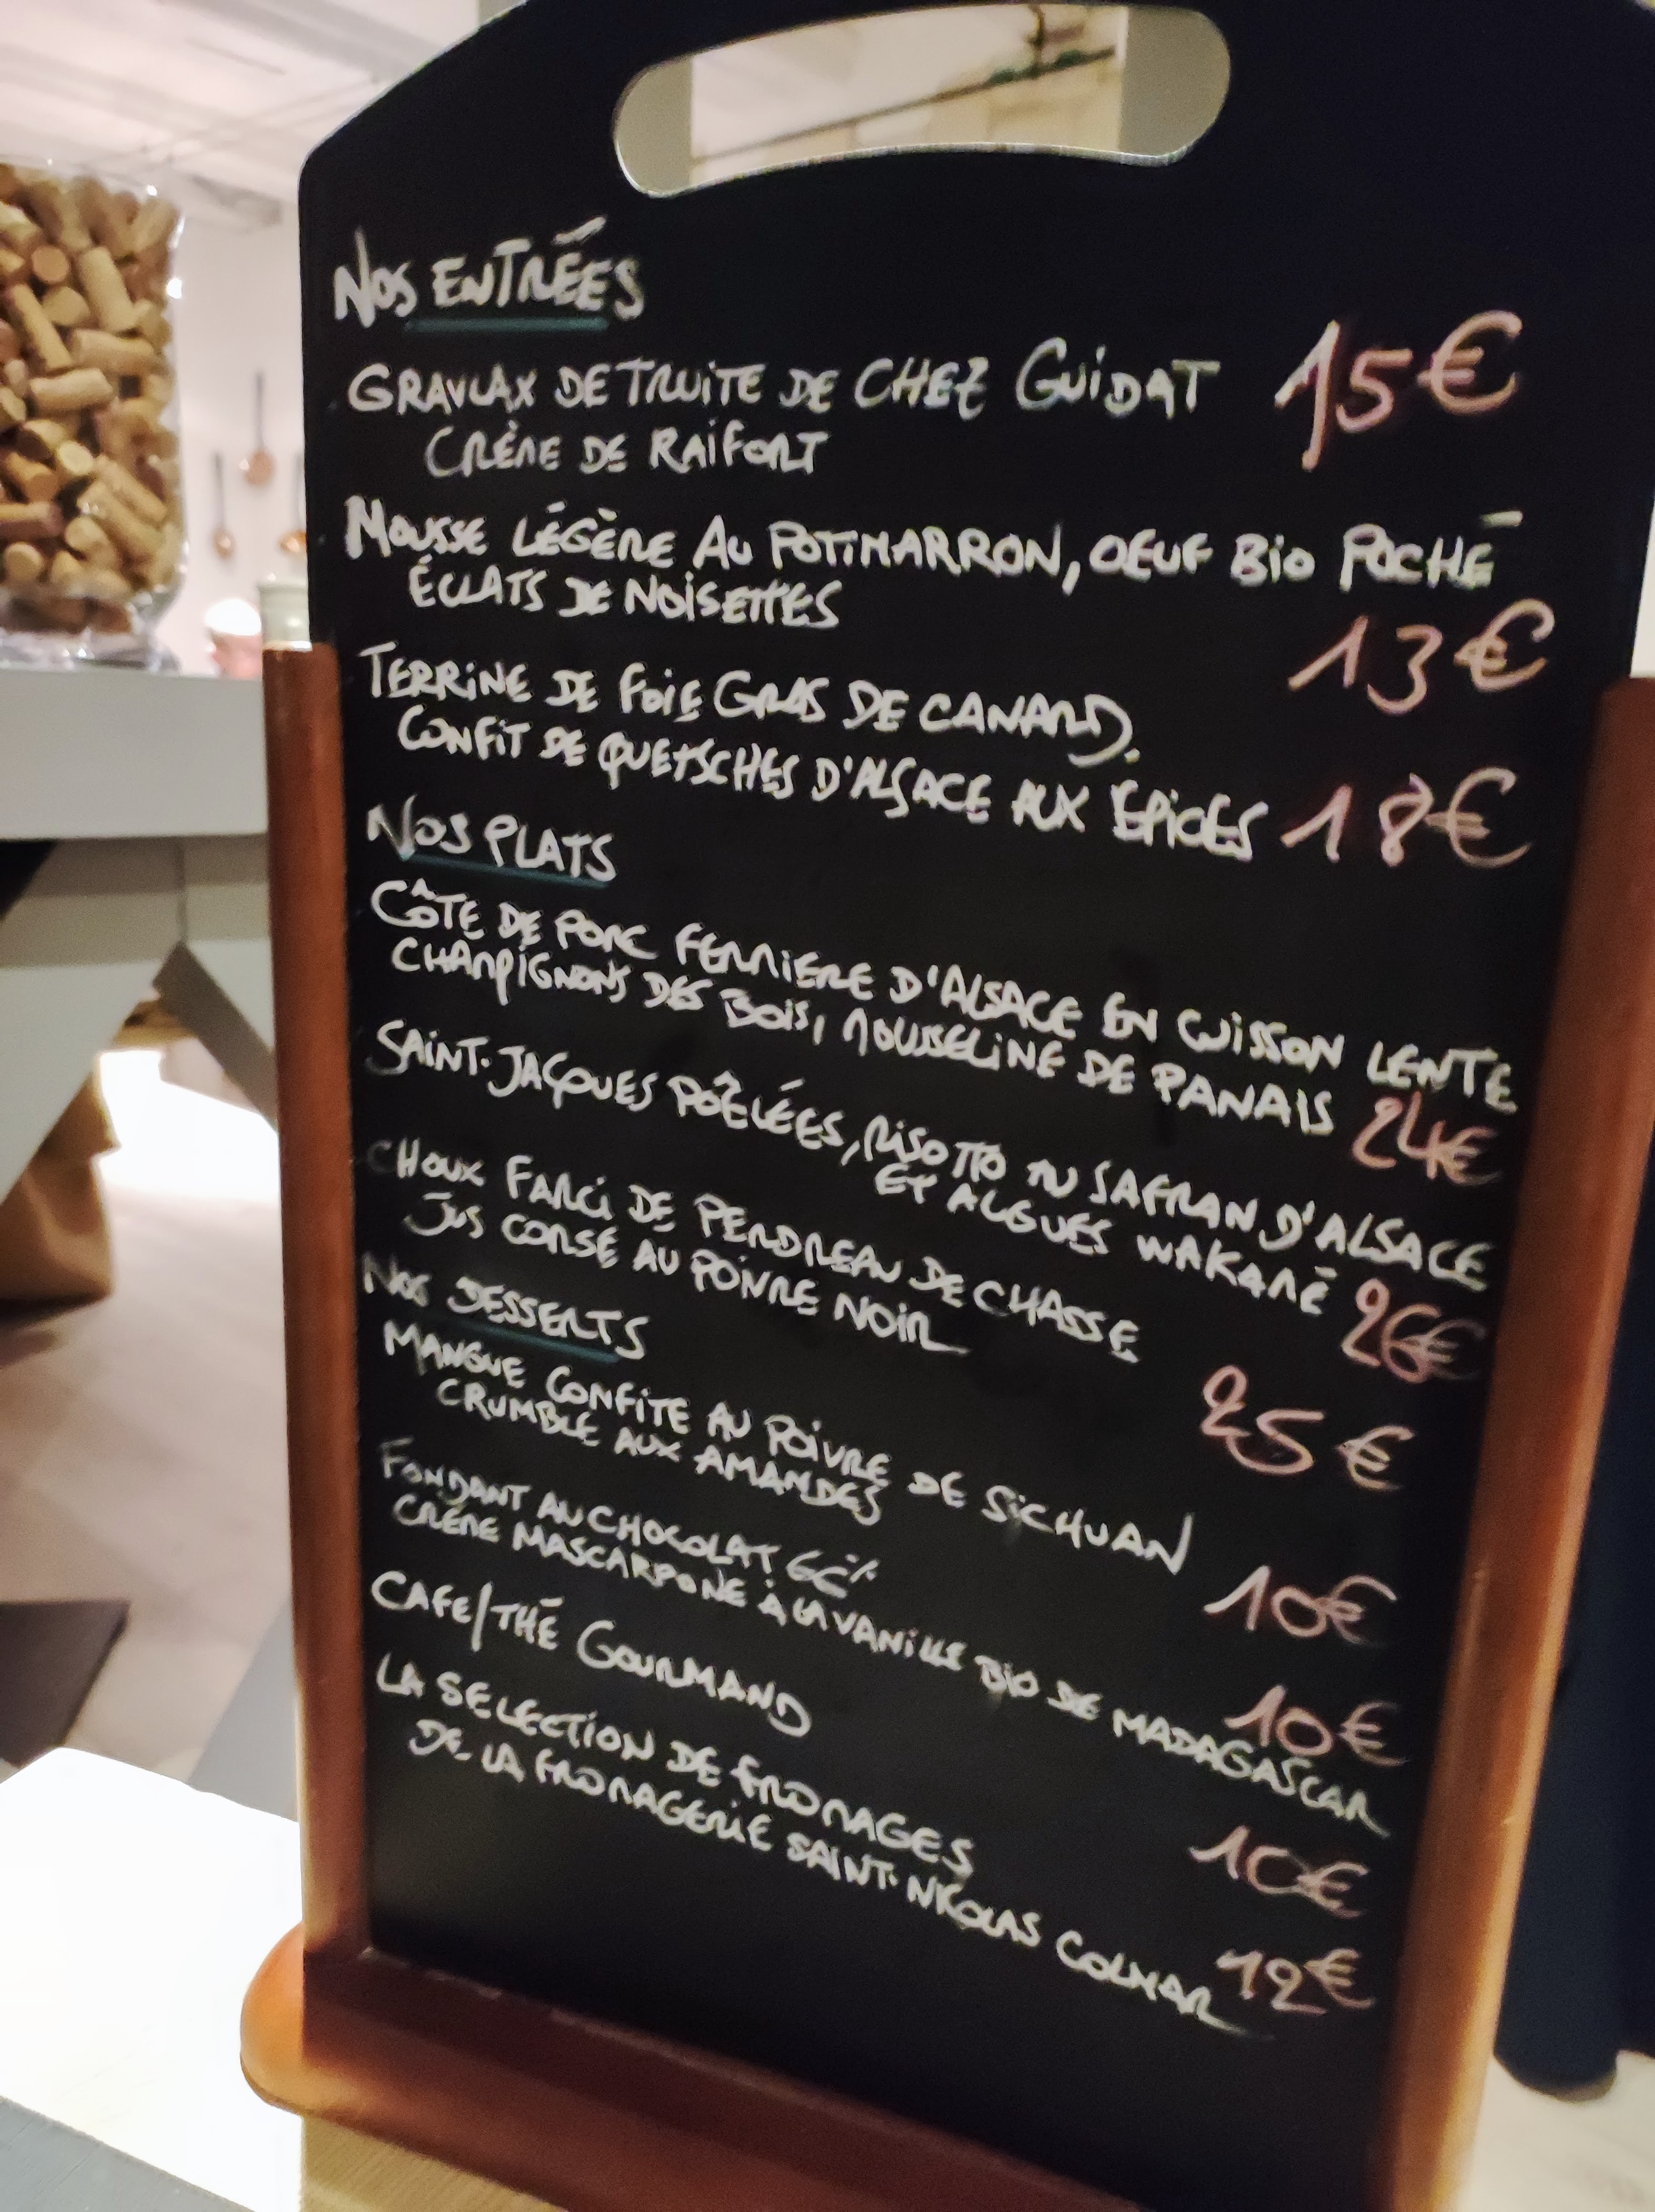 NOS ENTRÉES
GRAVLAX DE TRUITE DE CHEZ GUIDAT 15€
CRÈME DE RAIFORT
MOUSSE LÉGÈRE AU POTIMARRON, OEUF BIO POCHÉ
ÉCLATS DE NOISETTES
13€
TERRINE DE FOIE GRAS DE CANARD.
CONFIT DE QUETSCHES D'ALSACE AUX ÉPICES 18€
NOS PLATS
CÔTE DE PORC FERMIERE D'ALSACE EN CUISSON LENTE
CHAMPIGNONS DES BOIS, MOUSSELINE DE PANAIS 24€
SAINT-JACQUES POÊLÉES, RISOTTO AU SAFRAN D'ALSACE
ET ALGUES WAKAMÉ 26€
CHOUX FARCI DE PERDREAU DE CHASSE
JUS CORSÉ AU POIVRE NOIR
25€
NOS DESSERTS
MANGUE CONFITE AU POIVRE DE SICHUAN
CRUMBLE AUX AMANDES
10€
FONDANT AU CHOCOLAT
CRÉME MASCARPONE À LA VANILLE BIO DE MADAGASCAR
10€
CAFE/THÉ GOURMAND
10€
LA SELECTION DE FROMAGES
DE LA FROMAGERIE SAINT-NICOLAS COLMAR 12€